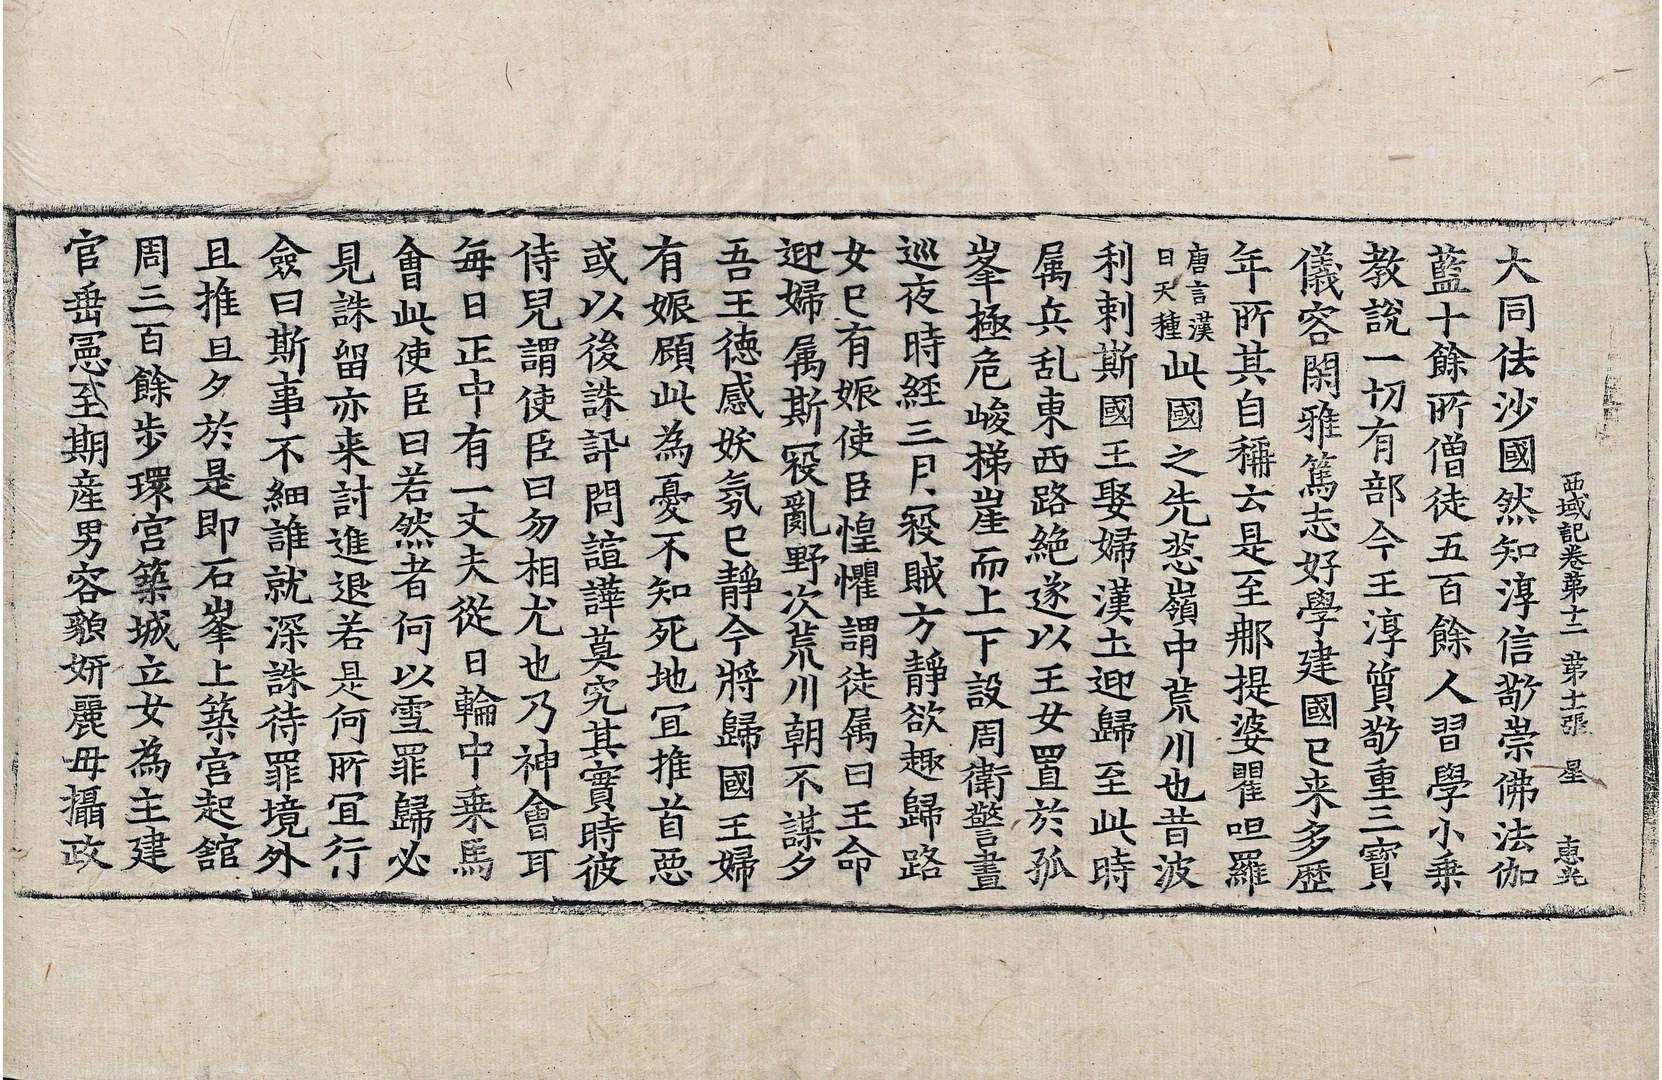 西域記卷苐十二 苐十一張 星 惠光
大同佉沙國然知淳信敬崇佛法伽
藍十餘所僧徒五百餘人習學小乗
教說一切有部今王淳質敬重三寶
儀容閑雅篤志好學建國已来多歷
年所其自稱云是至那提婆瞿呾羅
唐言漢
日天種
此國之先葱嶺中荒川也昔波
利剌斯國王娶婦漢土迎歸至此時
属兵乱東西路絶遂以王女置於孤
峯極危峻梯崖而上下設周衛警晝
巡夜時經三月㓂賊方靜欲趣歸路
女已有娠使臣惶懼謂徒属曰王命
迎婦属斯㓂亂野次荒川朝不謀夕
吾王德感妖氛已靜今將歸國王婦
有娠顧此為憂不知死地冝推首惡
或以後誅訊問諠譁莫究其實時彼
侍兒謂使臣曰勿相尤也乃神會耳
每日正中有一丈夫從日輪中乗馬
會此使臣曰若然者何以雪罪歸必
見誅留亦来討進退若是何所冝行
僉曰斯事不細誰就深誅待罪境外
且推旦夕於是即石峯上築宮起舘
周三百餘步環宮築城立女為主建
官垂憲至期産男容貌妍麗母攝政